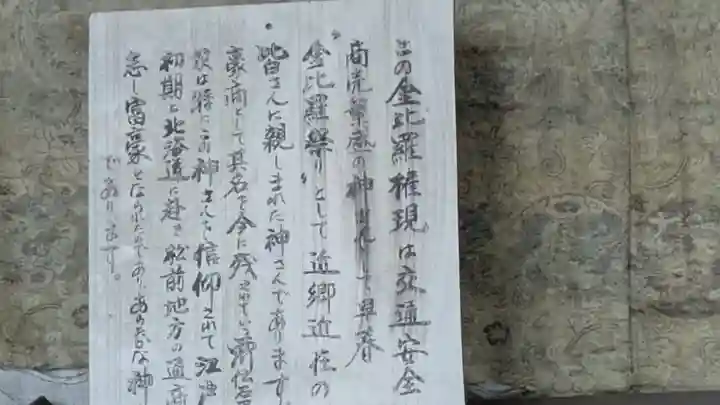 この金比羅権現は交通安全
商売繁盛の神されして早春
金比羅祭りとして近郷近在の
皆さんに親しまれた神さんであります
豪商として其名を今に残されている
は特にこの神さんを信仰されて江
初期に北海道に赴き松前地方の通商
志し富豪となられたのであり
であります。